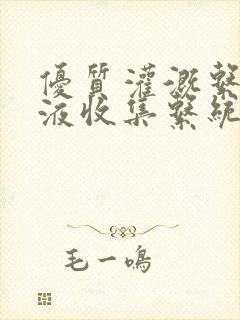 優質灌溉繫
液收集繫統
毛一鳴